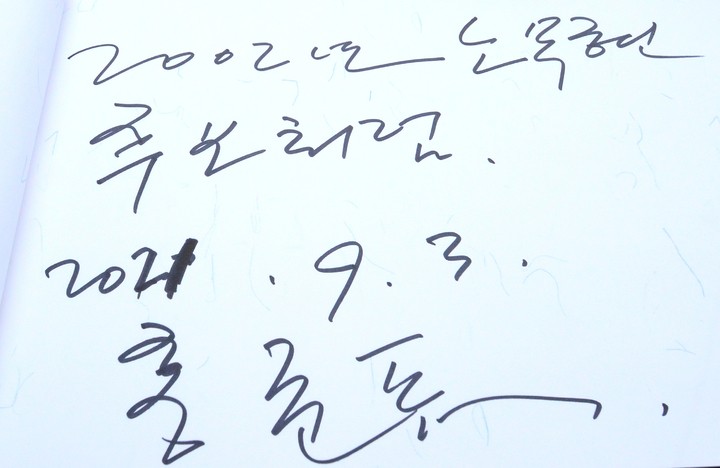 2002년 노무현
후보처럼.
2021. 9. 3.
홍준표.